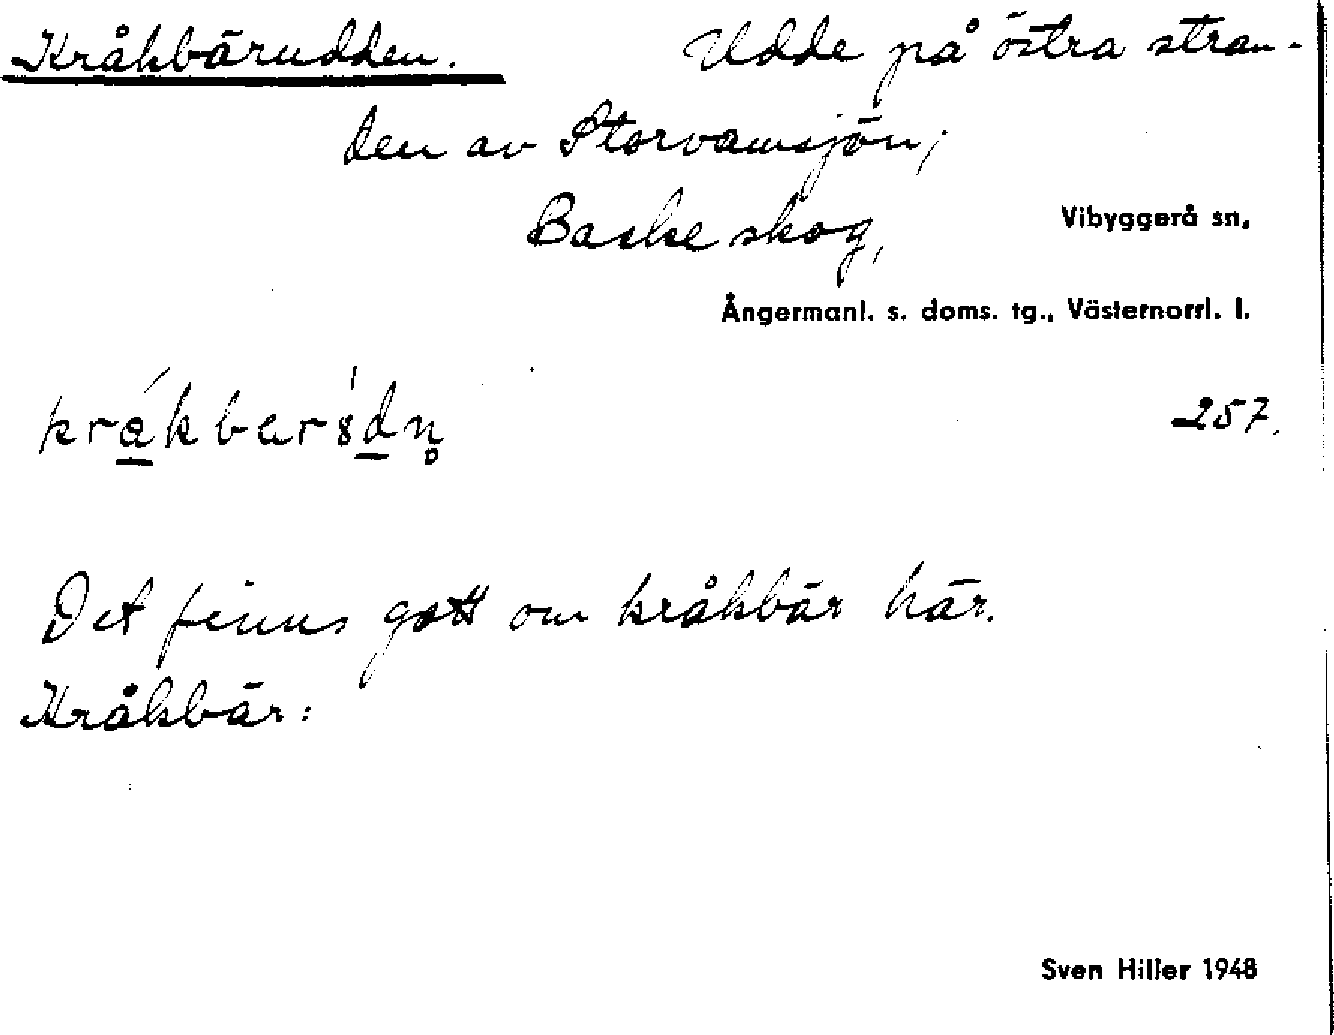 Kråkbärudden. Udde på östra stran-
den av Storvamsjön;
Backe skog,
Vibyggerå sn.
Ångermanl. s. doms. tg., Västernorrl. l.
257.
Det finns gott om kråkbär här.
Kråkbär:
Sven Hiller 1948